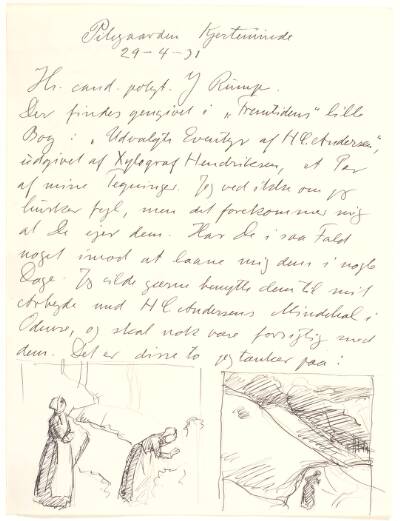 Pilegaarden Kjerteminde
29-4-31
Hr. cand. polyt. J Rump.
Der findes gengivet i „Fremtidens" lille
Bog: „Udvalgte Eventyr af H.C. Andersen",
udgivet af Xylograf Hendriksen, et Par
af mine Tegninger. Jeg ved ikke om jeg
husker fejl, men det forekommer mig
at De ejer dem. Har De i saa Fald
noget imod at laane mig dem i nogle
Dage. Jeg vilde gærne benytte dem til mit
Arbejde med H C Andersens Mindehal i
Odense, og skal nok være forsigtig med
dem. Det er disse to jeg tænker paa: